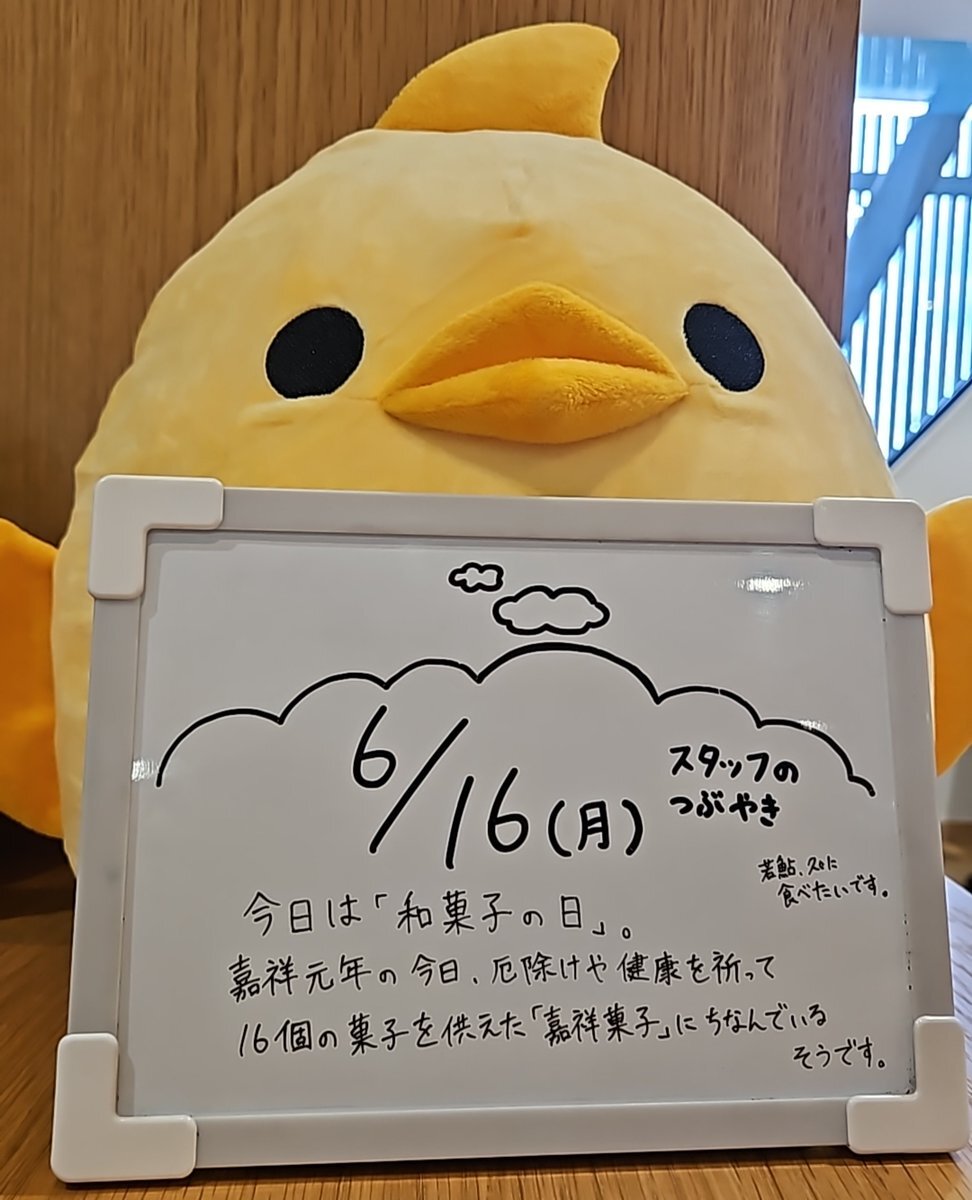 6/16(月)
スタッフの
つぶやき
若鮎、久々に
食べたいです。
今日は「和菓子の日」。
嘉祥元年の今日、厄除けや健康を祈って
16個の菓子を供えた「嘉祥菓子」にちなんでいる
そうです。